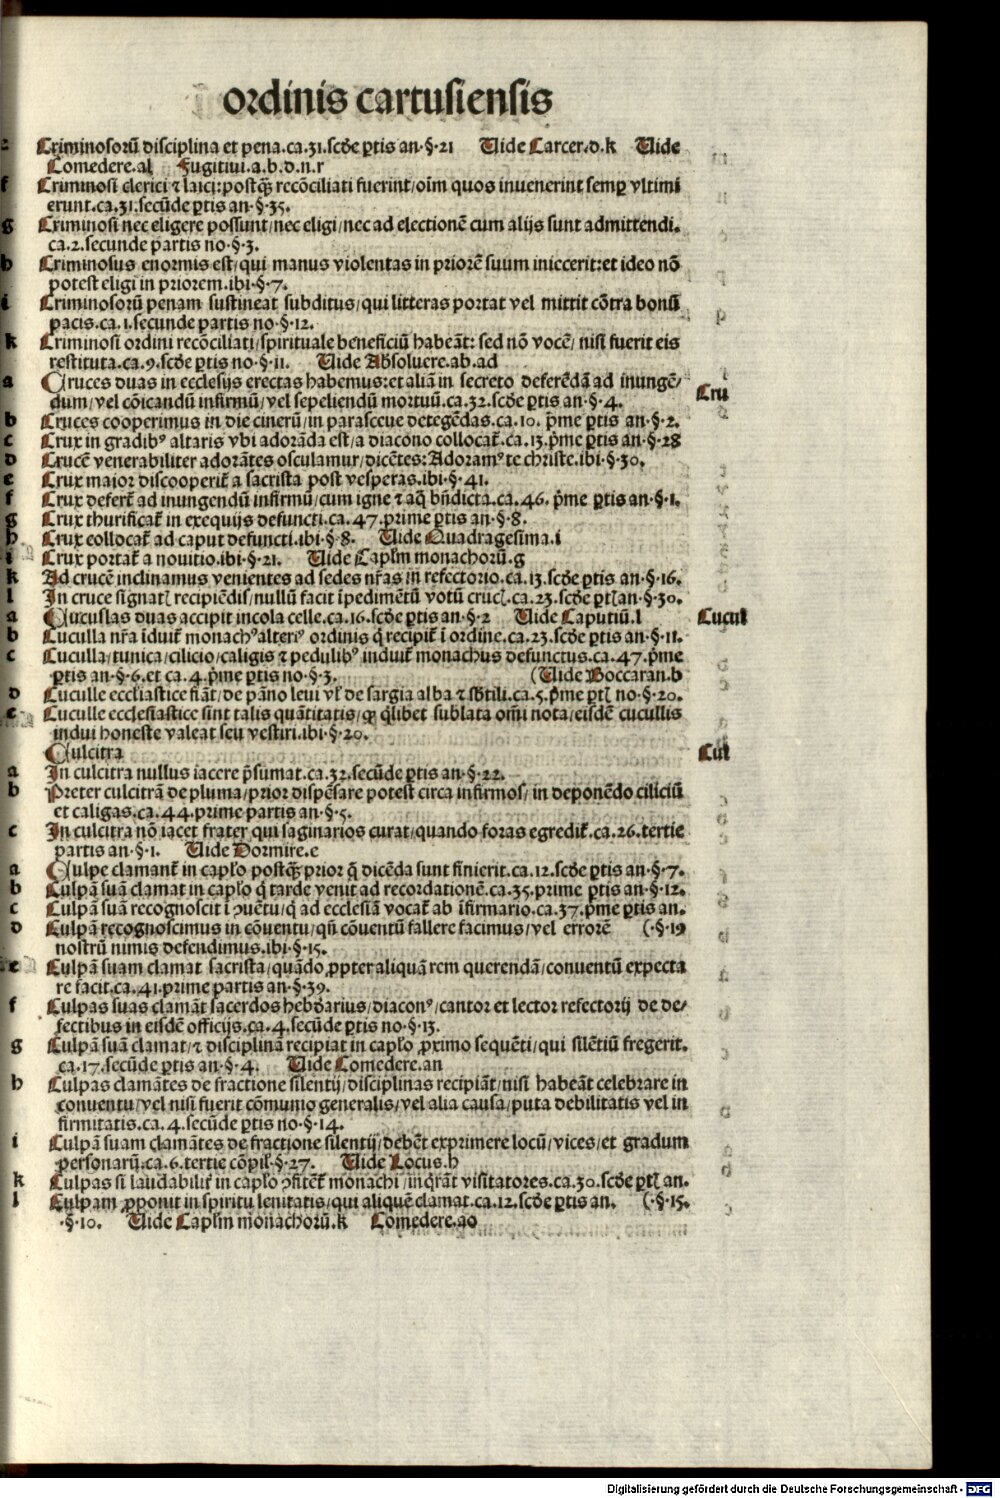 ordinis cartusiensis
Criminosorū disciplina et pena.ca.31.scd̄e p̱tis an·§·21 Uide Carcer.d.k Uide
Comedere.al Fugitiui.a.b.d.n.r
f Criminosi clerici ⁊ laici:postq̄ȝ recōciliati fuerint/oīm quos inuenerint semp̱ vltimi
erunt.ca.31.secūde p̱tis an·§·35.
g Criminosi nec eligere possunt/nec eligi/nec ad electionē cum alijs sunt admittendi.
ca.2.secunde partis no·§·3.
h Criminosus enormis est/qui manus violentas in priorē suum iniecerit:et ideo nō
potest eligi in priorem.ibi·§·7.
i Criminosorū penam sustineat subditus/qui litteras portat vel mittit cōtra bonū
pacis.ca.1.secunde partis no·§·12.
k Criminosi ordini recōciliati/spirituale beneficiū habeāt: sed nō vocē/nisi fuerit eis
restituta.ca.9.scd̄e p̱tis no·§·11. Uide Absoluere.ab.ad
a Cruces duas in ecclesijs erectas habemus:et aliā in secreto deferēdā ad inungē/ Cru
dum/vel cōicandū infirmū/vel sepeliendū mortuū.ca.32.scd̄e p̱tis an·§·4.
b Cruces cooperimus in die cinerū/in parasceue detegēdas.ca.10. p̄me p̱tis an·§·2.
c Crux in gradibꝰ altaris vbi adorāda est/a diacono collocat̄.ca.13.p̄me p̱tis an·§·28
d Crucē venerabiliter adorātes osculamur/dicētes:Adoramꝰ te christe.ibi·§·30.
e Crux maior discooperit̄ a sacrista post vesperas.ibi·§·41.
f Crux defert̄ ad inungendū infirmū/cum igne ⁊ aq̄ bn̄dicta.ca.46. p̄me p̱tis an·§·1.
g Crux thurificat̄ in exequijs defuncti.ca.47.prime p̱tis an·§·8.
h Crux collocat̄ ad caput defuncti.ibi·§·8. Uide Quadragesima.i
i Crux portat̄ a nouitio.ibi·§·21. Uide Capl̄m monachorū.g
k Ad crucē inclinamus venientes ad sedes nr̄as in refectorio.ca.13.scd̄e p̱tis an·§·16.
l In cruce signatꝭ recipiēdis/nullū facit īpedimētū votū crucꝭ.ca.23.scd̄e p̱tꝭ an·§·30.
a Cucullas duas accipit incola celle.ca.16.scd̄e p̱tis an·§·2 Uide Caputiū.l Cucul
b Cuculla nr̄a īduit̄ monachꝰ alteriꝰ ordinis q̄ recipit̄ ī ordine.ca.23.scd̄e p̱tis an·§·11.
c Cuculla/tunica/cilicio/caligis ⁊ pedulibꝰ induit̄ monachus defunctus.ca.47.p̄me
p̱tis an·§·6.et ca.4.p̄me p̱tis no·§·3. (Uide Boccaran.b
d Cuculle eccl̄iastice fiāt/de pāno leui vl̄ de sargia alba ⁊ sb̄tili.ca.5.p̄me p̱tꝭ no·§·20.
e Cuculle ecclesiastice sint talis quātitatis/qp̄ q̄libet sublata om̄i nota/eisdē cucullis
indui honeste valeat seu vestiri.ibi·§·20.
Culcitra Cul
a In culcitra nullus iacere p̄sumat.ca.32.secūde p̱tis an·§·22.
b Preter culcitrā de pluma/prior dispēsare potest circa infirmos/in deponēdo ciliciū
et caligas.ca.44.prime partis an·§·5.
c In culcitra nō iacet frater qui saginarios curat/quando foras egredit̄.ca.26.tertie
partis an·§·1. Uide Dormire.e
a Culpe clamant̄ in capl̄o postq̄ȝ prior q̄ dicēda sunt finierit.ca.12.scd̄e p̱tis an·§·7.
b Culpā suā clamat in capl̄o q̄ tarde venit ad recordationē.ca.35.prime p̱tis an·§·12.
c Culpā suā recognoscit ī ꝯuētu/q̄ ad ecclesiā vocat̄ ab īfirmario.ca.37.p̄me p̱tis an.
d Culpā recognoscimus in cōuentu/qn̄ cōuentū fallere facimus/vel errorē (·§·19
nostrū nimis defendimus.ibi·§·15.
e Culpā suam clamat sacrista/quādo ꝓpter aliquā rem querendā/conuentū expecta
re facit.ca.41.prime partis an·§·39.
f Culpas suas clamāt sacerdos hebdarius/diaconꝰ/cantor et lector refectorij de de/
fectibus in eisdē officijs.ca.4.secūde p̱tis no·§·13.
g Culpā suā clamat/⁊ disciplinā recipiat in capl̄o ꝓximo sequēti/qui silētiū fregerit.
ca.17.secūde p̱tis an·§·4. Uide Comedere.an
h Culpas clamātes de fractione silentij/disciplinas recipiāt/nisi habeāt celebrare in
conuentu/vel nisi fuerit cōmunio generalis/vel alia causa/puta debilitatis vel in
firmitatis.ca.4.secūde p̱tis no·§·14.
i Culpā suam clamātes de fractione silentij/debēt exprimere locū/vices/et gradum
personarū.ca.6.tertie cōpil̄·§·27. Uide Locus.h
k Culpas si laudabilit̄ in capl̄o ꝯfitēt̄ monachi/inq̄rāt visitatores.ca.30.scd̄e p̱tꝭ an.
l Culpam ꝓponit in spiritu lenitatis/qui aliquē clamat.ca.12.scd̄e p̱tis an. (·§·15.
·§·10. Uide Capl̄m monachorū.k Comedere.ao
Digitalisierung gefördert durch die Deutsche Forschungsgemeinschaft - DFG